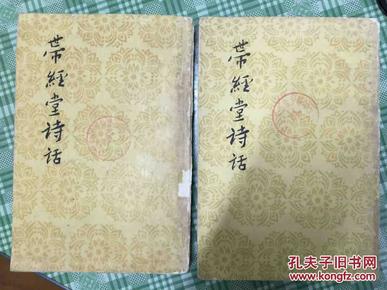 帶經堂诗话
帶經堂诗话
孔夫子旧书网
www.kongfz.com